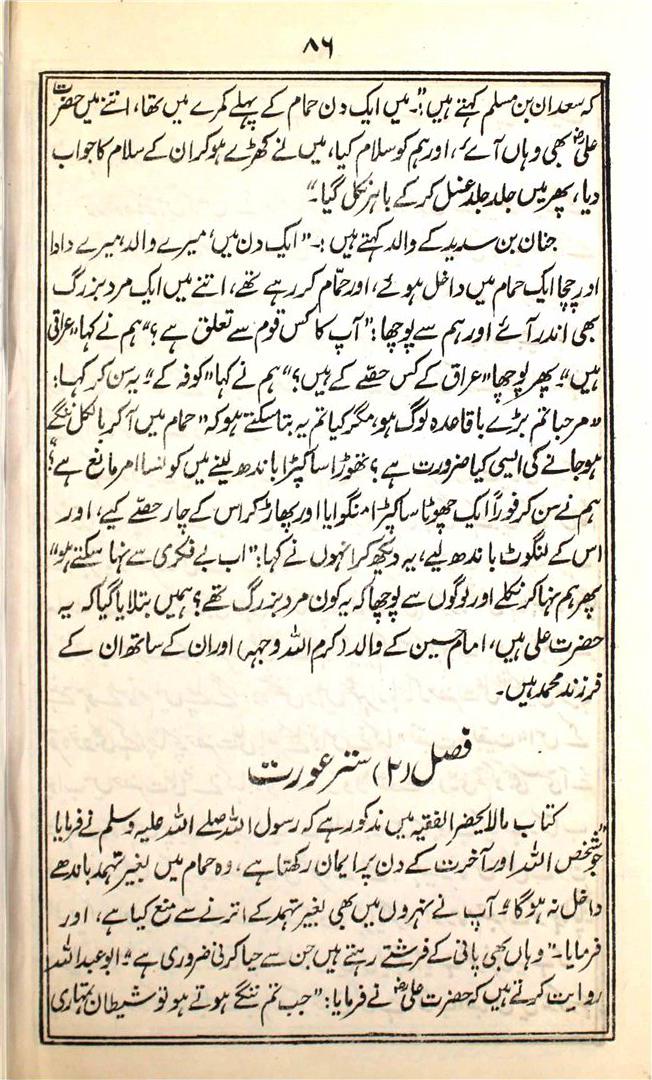 ۸۶
کہ سعدان بن مسلم کہتے ہیں:۔ "میں ایک دن حمام کے پہلے کمرے میں تھا، اتنے میں حضرت
علیؓ بھی وہاں آئے، اور ہم کو سلام کیا، میں نے کھڑے ہو کر ان کے سلام کا جواب
دیا، پھر میں جلد جلد غسل کر کے باہر نکل گیا۔"
جنان بن سدید کے والد کہتے ہیں:۔ "ایک دن میں، میرے والد، میرے دادا
اور چچا ایک حمام میں داخل ہوئے، اور حمّام کر رہے تھے، اتنے میں ایک مرد بزرگ
بھی اندر آئے اور ہم سے پوچھا: "آپ کا کس قوم سے تعلق ہے؟" ہم نے کہا "عراقی
ہیں" پھر پوچھا "عراق کے کس حصّے کے ہیں؟" ہم نے کہا "کوفہ کے" یہ سن کر کہا:
"مرحبا تم بڑے باقاعدہ لوگ ہو، مگر کیا تم یہ بتا سکتے ہو کہ "حمام میں آ کر بالکل ننگے
ہو جانے کی ایسی کیا ضرورت ہے؟ تھوڑا سا کپڑا باندھ لینے میں کونسا امر مانع ہے؟"
ہم نے سن کر فوراً ایک چھوٹا سا کپڑا منگوایا اور پھاڑ کر اس کے چار حصّے کیے، اور
اس کے لنگوٹ باندھ لیے، یہ دیکھ کر انہوں نے کہا: "اب بے فکری سے نہا سکتے ہو"
پھر ہم نہا کر نکلے اور لوگوں سے پوچھا کہ یہ کون مرد بزرگ تھے؟ ہمیں بتلایا گیا کہ یہ
حضرت علی ہیں، امام حسین کے والد (کرم اللہ وجہہ) اور ان کے ساتھ ان کے
فرزند محمد ہیں۔
فصل (۲) ستر عورت
کتاب مالا یحضر الفقیہ میں مذکور ہے کہ رسول اللہ صلے اللہ علیہ وسلم نے فرمایا
"جو شخص اللہ اور آخرت کے دن پر ایمان رکھتا ہے، وہ حمام میں بغیر تہمد باندھے
داخل نہ ہو گا" آپ نے نہروں میں بھی بغیر تہمد کے اترنے سے منع کیا ہے، اور
فرمایا۔ "وہاں بھی پانی کے فرشتے رہتے ہیں جن سے حیا کرنی ضروری ہے" ابو عبداللہ
روایت کرتے ہیں کہ حضرت علیؓ نے فرمایا: "جب تم ننگے ہوتے ہو تو شیطان تمہاری